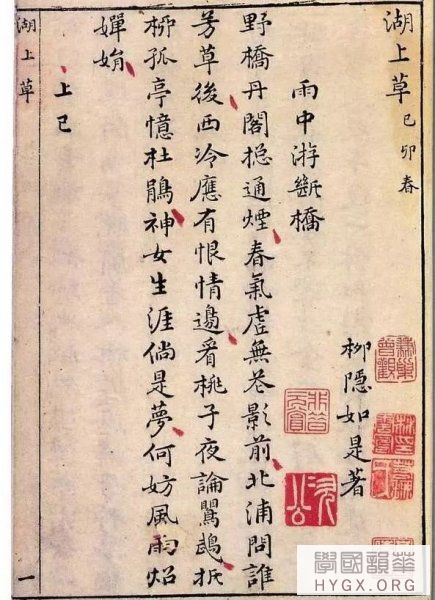 湖上草 己卯春
柳隱如是著
雨中游斷橋
野橋丹閣捴通煙春氣虛無花影前北浦問誰
芳草後西泠應有恨情邊看桃子夜論鸎鵡折
柳孤亭憶杜鵑神女生涯倘是夢何妨風雨炤
嬋娟
上巳
湖上草
一
華韻國學
HYGX.ORG